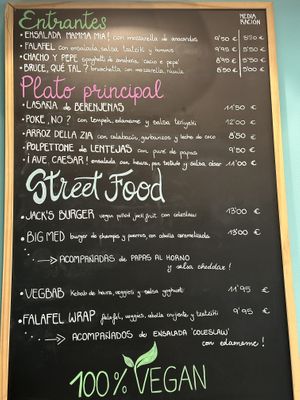 Entrantes
MEDIA RACIÓN
• ENSALADA MAMMA MIA! con mozzarella de anacardos 9'50 € 5'50 €
• FALAFEL con ensalada, salsa tzatziki y humus 9'50 € 5'50 €
• CHACHO Y PEPE (spaghetti de canaria, cacio e pepe) 8'50 €
• BRUCE, QUÉ TAL? bruschetta con mozzarella, rúcula 8'50 €
Plato principal
• LASAÑA de BERENJENAS 11'50 €
• POKÉ, NO? con tempeh, edamame y salsa teriyaki 12'00 €
• ARROZ DELLA ZIA con calabacín, garbanzos y leche de coco 8'50 €
• POLPETTONE de LENTEJAS con puré de papas 9'50 €
• ¡AVE, CAESAR! ensalada con heura, pan tostado y salsa césar 11'00 €
Street Food
• JACK'S BURGER vegan pulled jack fruit con coleslaw 13'00 €
• BIG MED burger de champis y puerros, con cebolla caramelizada 13'00 €
→ ACOMPAÑADAS de PAPAS AL HORNO
y salsa cheddar!
• VEGBAB Kebab de heura, veggies y salsa yoghurt 11'95 €
• FALAFEL WRAP falafel, veggies, cebolla crujiente y tzatziki 9'95 €
→ ACOMPAÑADOS de ENSALADA 'COLESLAW'
con edameme!
100% VEGAN